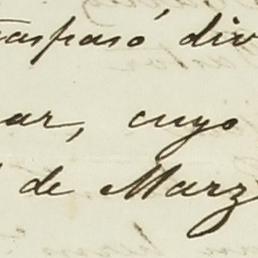 traspasó div
ar, cuyo
de Marz